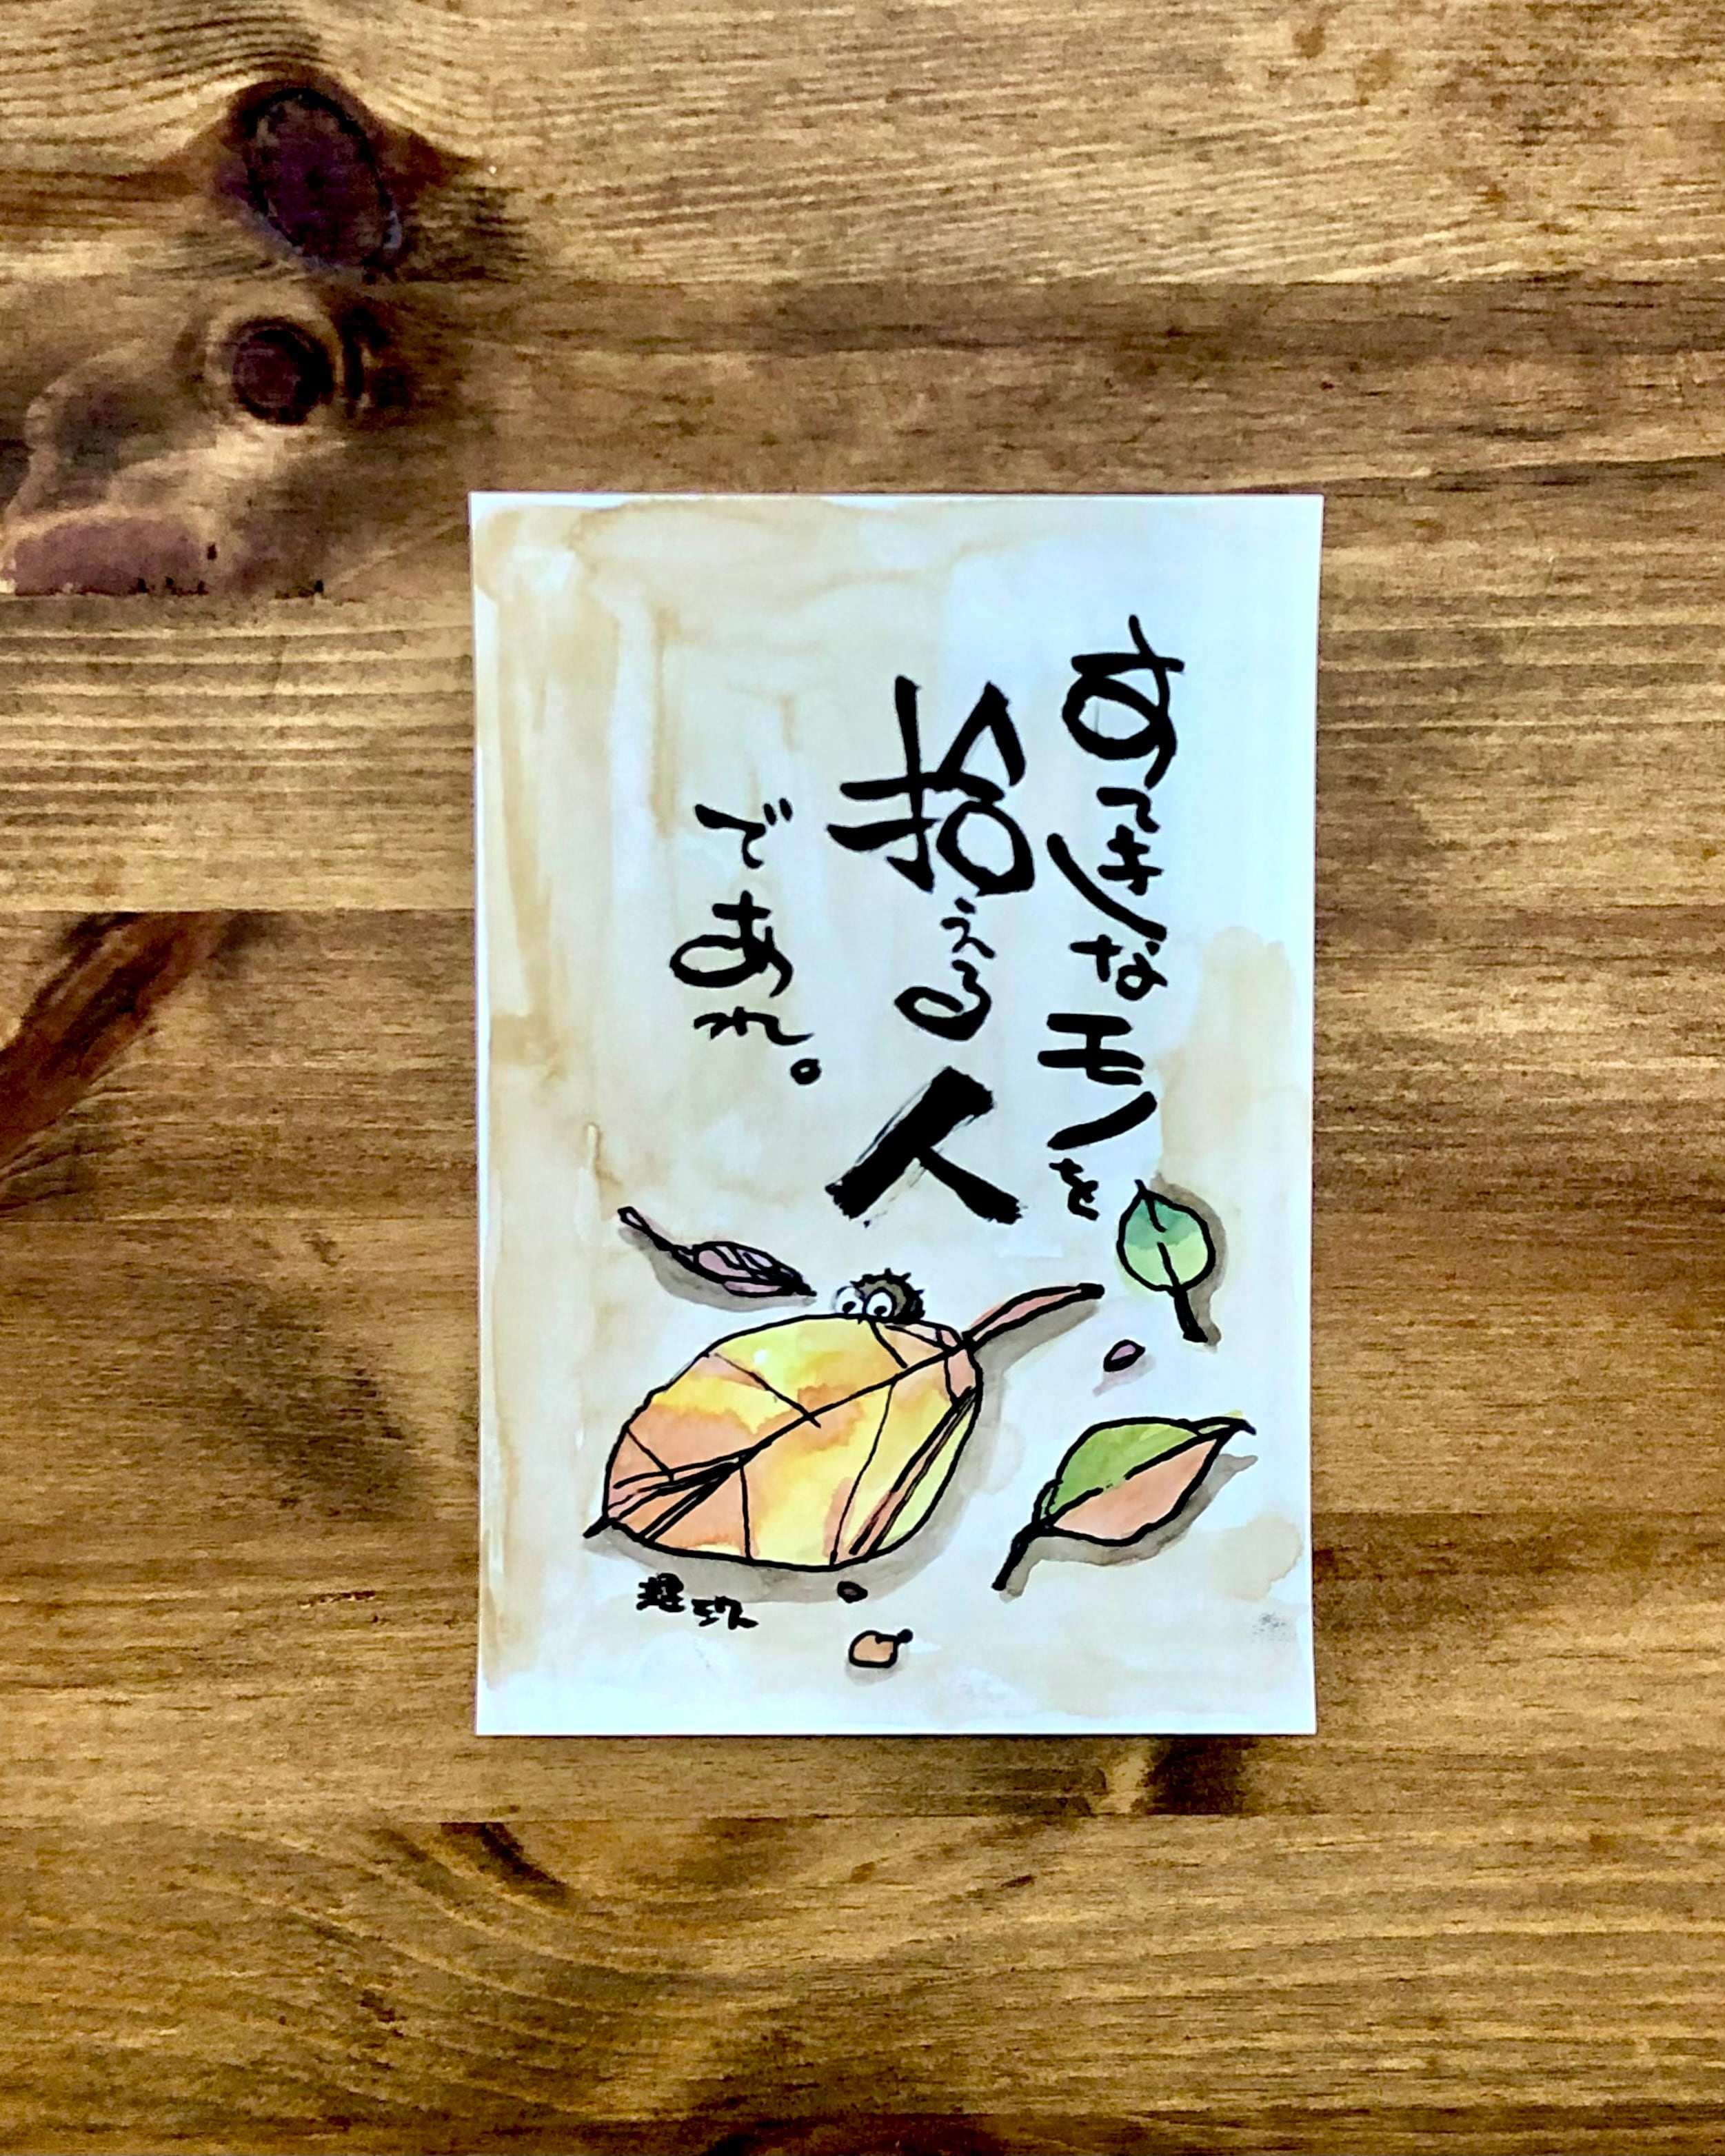 すてきなモノを
拾える人
であれ。